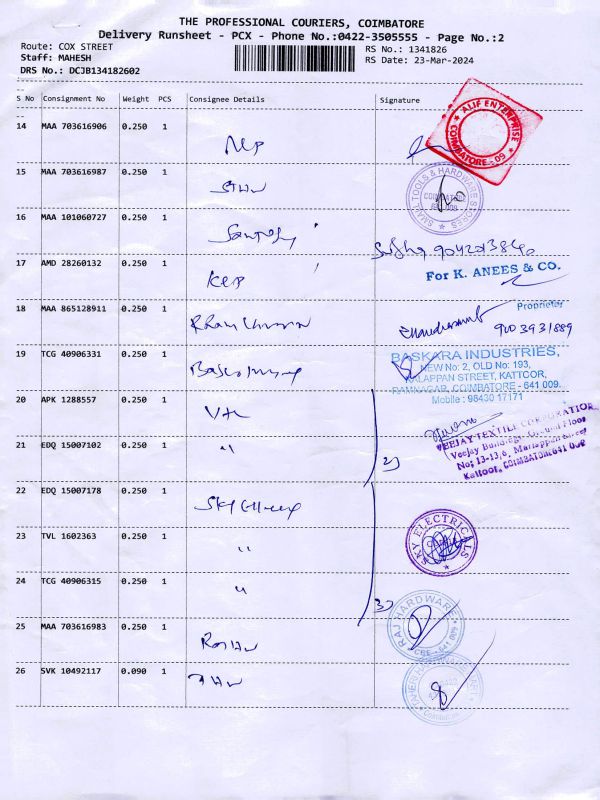 THE PROFESSIONAL COURIERS, COIMBATORE
Delivery Runsheet - PCX - Phone No.:0422-3505555 - Page No.:2
Route: COX STREET
RS No.: 1341826
Staff: MAHESH
RS Date: 23-Mar-2024
DRS No.: DCJB134182602
S No Consignment No Weight PCS Consignee Details Signature
14 MAA 703616906 0.250 1
ALIF ENTERPRISE
COIMBATORE - 09
15 MAA 703616987 0.250 1
SMALL TOOLS & HARDWARE STORES
16 MAA 101060727 0.250 1
17 AMD 28260132 0.250 1
For K. ANEES & CO.
Proprietor
18 MAA 865128911 0.250 1
9003931889
19 TCG 40906331 0.250 1
BASKARA INDUSTRIES,
NEW No: 2, OLD No: 193,
KALAPPAN STREET, KATTOOR,
RAMNAGAR, COIMBATORE - 641 009.
Mobile : 98430 17171
20 APK 1288557 0.250 1
VEEJAY TEXTILE CORPORATION
Veejay Buildings, Ground Floor
No; 13-13,6, Mariappan Street
Kattoor, COIMBATORE-641 009
21 EDQ 15007102 0.250 1 "
2)
22 EDQ 15007178 0.250 1
23 TVL 1602363 0.250 1 "
SKY ELECTRICALS
24 TCG 40906315 0.250 1 "
3)
25 MAA 703616983 0.250 1
RAJ HARDWARE
CBE - 641 009
26 SVK 10492117 0.090 1